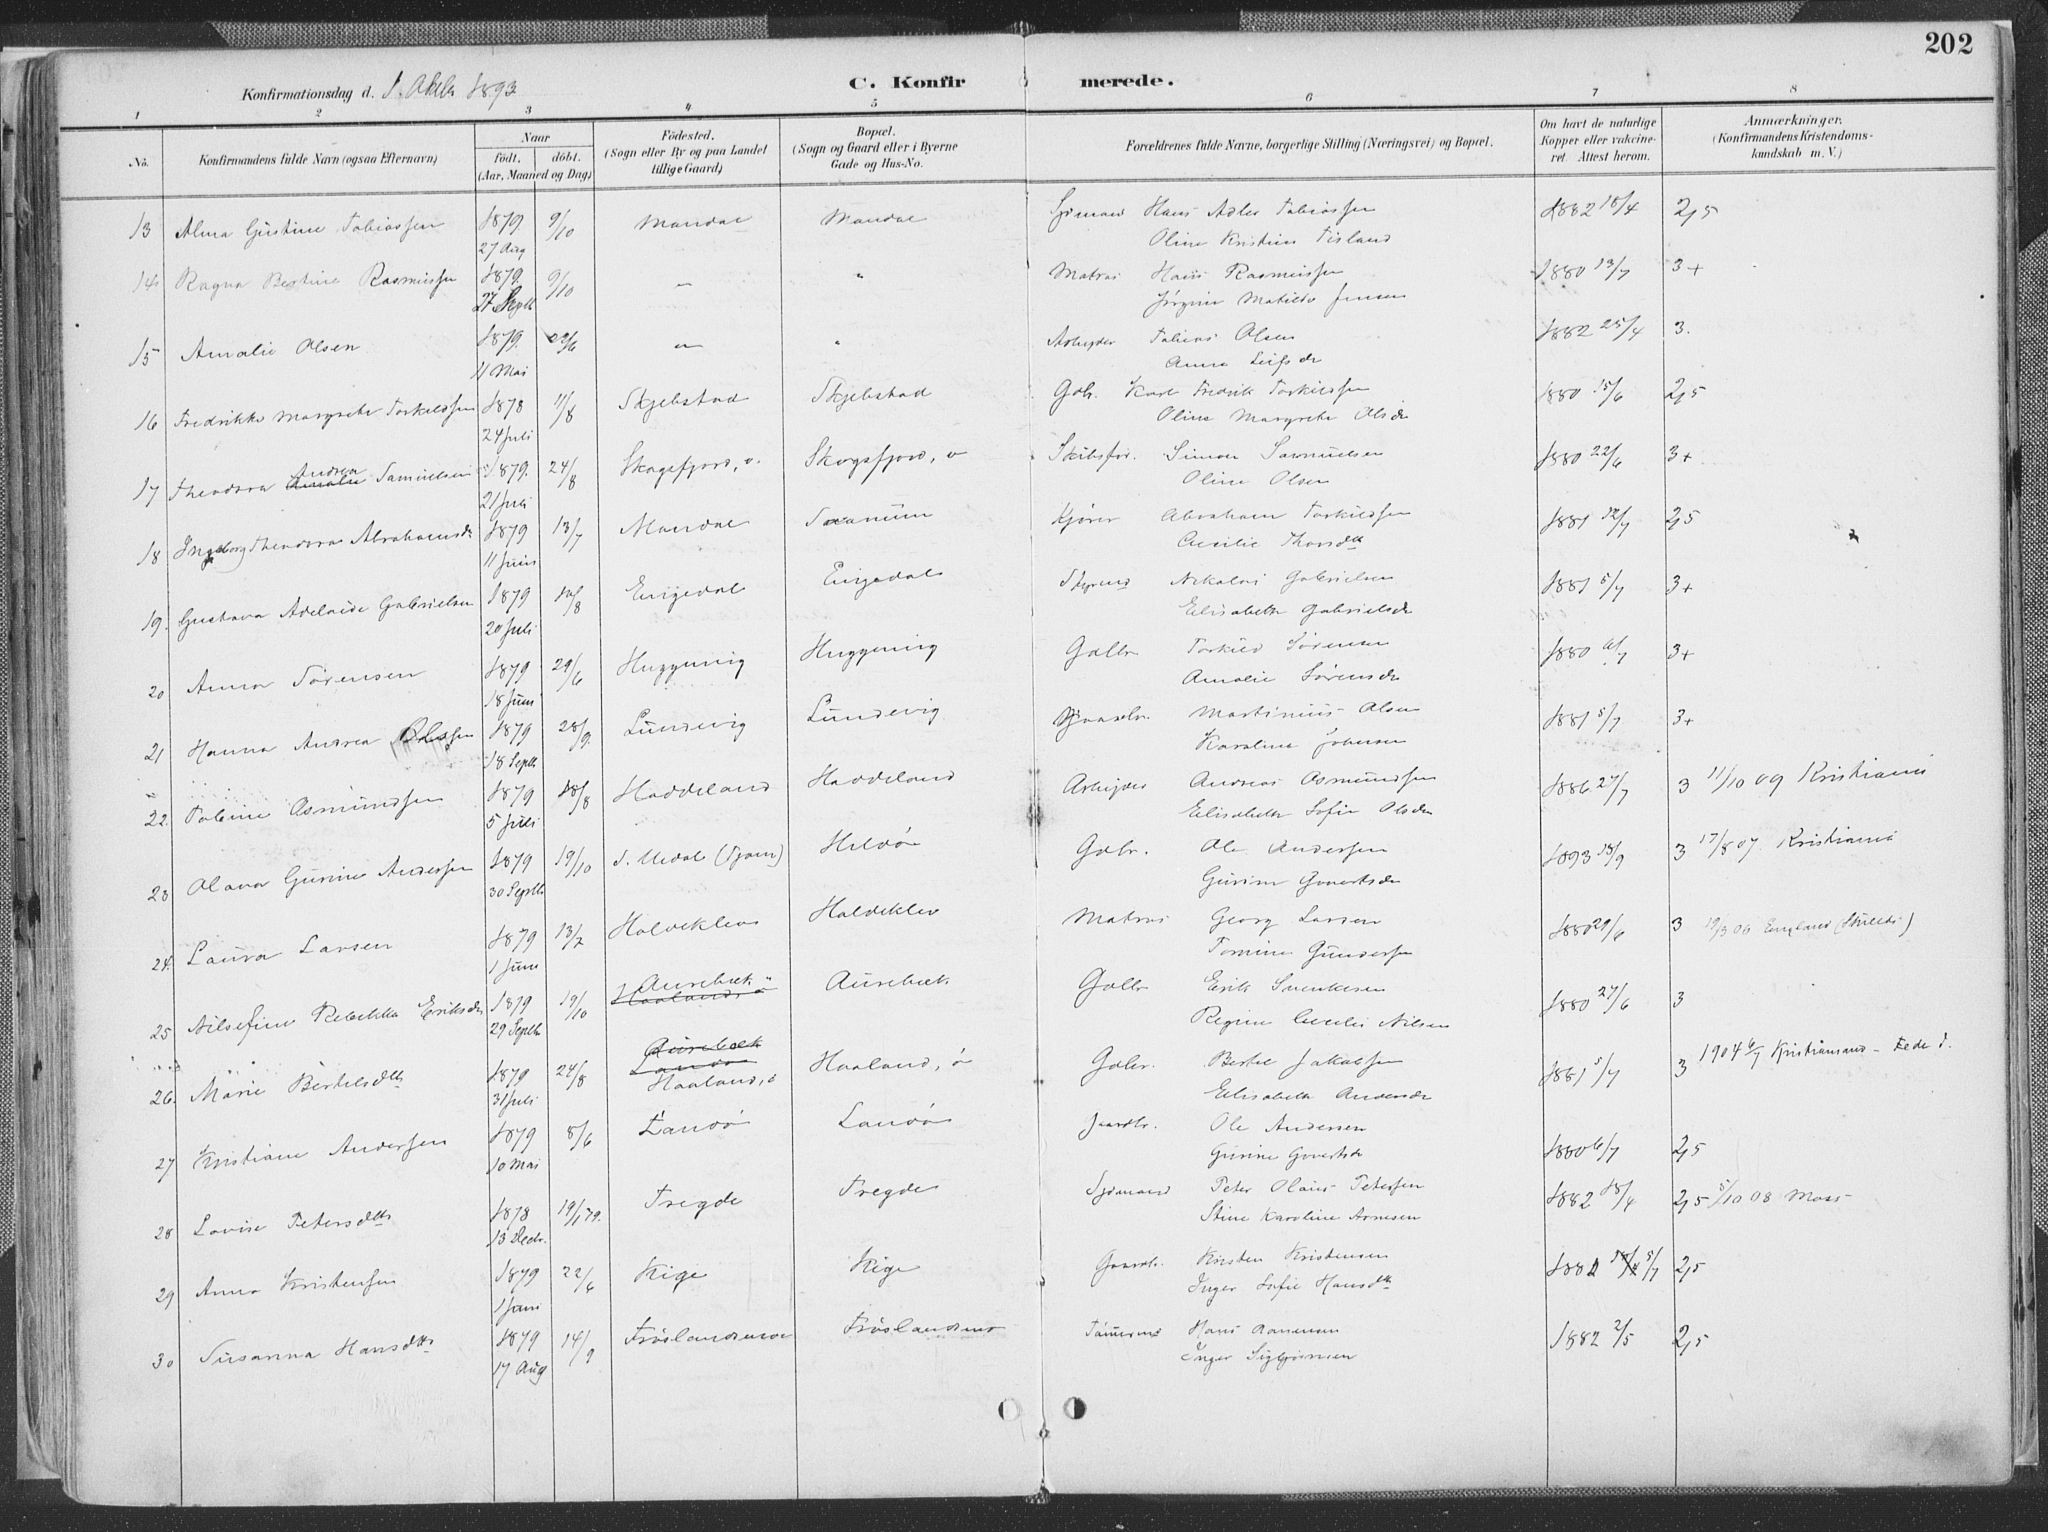 202
Konfirmationsdag d. 1. Oktbr 1893
C. Konfirmerede.
1 2 3 4 5 6 7 8
No.
Konfirmandens fulde Navn (ogsaa Efternavn)
Naar
født. döbt.
(Aar, Maaned og Dag)
Födested.
(Sogn eller By og paa Landet
tillige Gaard)
Bopæl.
(Sogn og Gaard eller i Byerne
Gade og Hus-No.
Forældrenes fulde Navne, borgerlige Stilling (Næringsvei) og Bopæl.
Om havt de naturlige
Kopper eller vakcine-
ret. Attest herom.
Anmærkninger.
(Konfirmandens Kristendoms-
kundskab m. V.)
13 Alma Gustine Tobiassen 1879 9/10 Mandal Mandal Sjömand Hans Adler Tobiassen 1882 18/4 2,5
27 Aug Oline Kristine Tisland
14 Ragna Bertine Rasmussen 1879. 9/10 — " Matros Hans Rasmussen 1880 13/7 3+
27 Septb Jörgine Matilde Jensen
15 Amalie Olsen 1879. 22/6 — " Arbeyder Tobias Olsen 1882 25/4 3.
11 Mai Anna Leifsdr
16 Fredrikke Margrete Torkildsen 1878 11/8 Skjebstad Skjebstad Gdbr. Karl Fredrik Torkildsen 1880 15/6 2,5
24 Juli Oline Margrete Olsdr
17 Theodora Andrea Samuelsen 1879. 24/8 Skogsfjord, ö. Skogsfjord, ö Skibsför. Simon Samuelsen 1880 22/6 3+
21 Juli Oline Olsen
18 Ingeborg Theodora Abrahamsdr 1879 13/7 Mandal Sanum Kjörer Abraham Torkildsen 1881 12/7 2,5
11 Juni Cecilie Thorsdtt
19. Gustava Adelaide Gabrielsen 1879 10/8 Eigedal Eigedal Styrmd Nikolai Gabrielsen 1881 5/7 3+
20 Juli Elisabeth Gabrielsdr
20 Anna Sörensen 1879 29/6 Huggevig Huggevig Gdbr Torkild Sörensen 1880 6/7 3+
18 Juni Amalie Sörensdr
21 Hanna Andrea Olsen 1879 28/9. Lundevig Lundevig Gaardbr. Martinius Olsen 1881 5/7 3+
18 Septb Karoline Johnsen
22. Tobine Asmundsen 1879 18/8 Haddeland Haddeland Arbejder Andreas Asmundsen 1886 27/7 3 11/10 09 Kristiania
5 Juli Elisabeth Sofie Olsdr
23 Olava Gurine Andersen 1879 19/10 S. Uedal (Tjom) Hildöe Gdbr. Ole Andersen 1893 18/9 3 17/8 07. Kristiania
30 Septb Gurine Govertsdr
24. Laura Larsen 1879 13/7 Holdeklev Holdeklev Matros Georg Larsen 1880 29/6 3 19/3 06 England (Shields)
1 Juni Tomine Gundersen
25 Nilsefine Rebekka Eriksdr 1879 19/10 Aurebæk Aurebæk Gdbr Erik Svenksen 1880 27/6 3
29 Septb Regine Cecilie Nilsen
26. Marie Bertelsdtt 1879 24/8 Haaland, ö Haaland, ö Gdbr. Bertel Jakobsen 1881 5/7 3 1904 6/7 Kristiansand - Fede d.
31 Juli Elisabeth Andersdr
27 Kristiane Andersen 1879 8/6 Landö Landö Gaardbr. Ole Andersen 1880 6/7 2,5
10 Mai Gurine Govertsdr
28 Lovise Petersdtt 1878 19/1 79. Tregde Tregde Sjömand Peter Olaus Petersen 1882 18/4 2,5 5/10 08 Moss
13 Decbr. Stine Karoline Arnesen
29 Anna Kristensen 1879 22/6 Kige Kige Gaardbr. Kristen Kristensen 1881 5/7 2,5
1 Juni Inger Sofie Hansdtt
30 Susanna Hansdtt 1879 14/9 Fröslandsmoe Fröslandsmo Tömrmd Hans Aanensen 1882 2/5 2,5
17 Aug Inger Sigbjörnsen